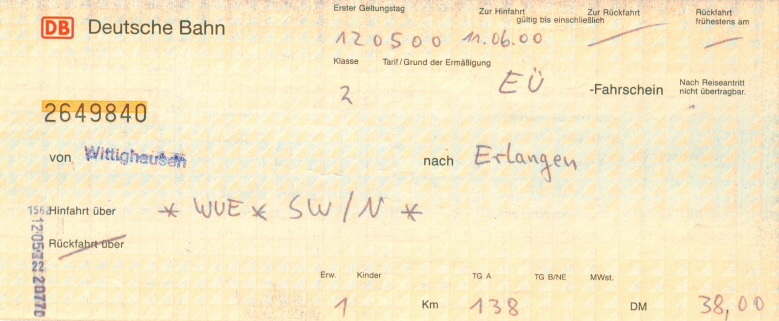 Erster Geltungstag Zur Hinfahrt Zur Rückfahrt Rückfahrt
gültig bis einschließlich frühestens am
DB Deutsche Bahn
120500 11.06.00
Klasse Tarif/Grund der Ermäßigung
2 EÜ -Fahrschein Nach Reiseantritt
nicht übertragbar.
2649840
von Wittighausen nach Erlangen
Hinfahrt über * WUE * SW/N *
Rückfahrt über
Erw. Kinder TG A TG B/NE MWst.
1 Km 138 DM 38,00
22 20770